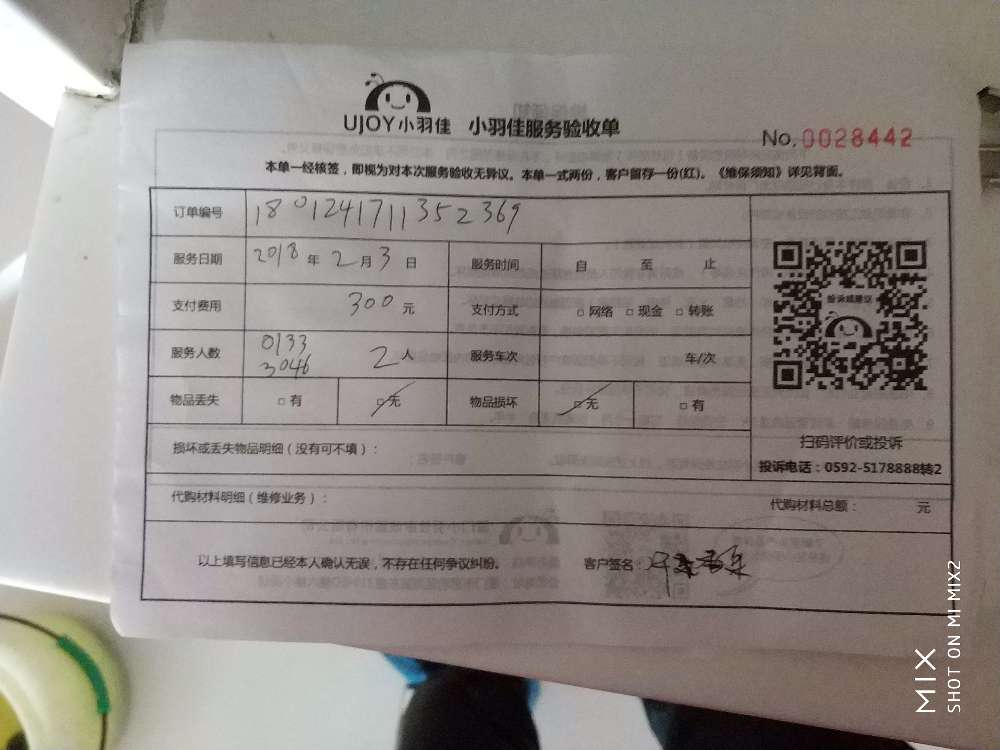 UJOY小羽佳 小羽佳服务验收单
No.0028442
本单一经核签，即视为对本次服务验收无异议。本单一式两份，客户留存一份(红)。《维保须知》详见背面。
订单编号 1801241711352369
服务日期 2018年2月3日 服务时间 自 至 止
支付费用 300元 支付方式 □网络 □现金 □转账
服务人数 0133 3046 2人 服务车次 车/次
物品丢失 □有 □无 物品损坏 □无 □有
投诉或建议
扫码评价或投诉
投诉电话：0592-5178888转2
损坏或丢失物品明细（没有可不填）：
代购材料明细（维修业务）： 代购材料总额： 元
以上填写信息已经本人确认无误，不存在任何争议纠纷。 客户签名：
MIX
SHOT ON MI MIX2